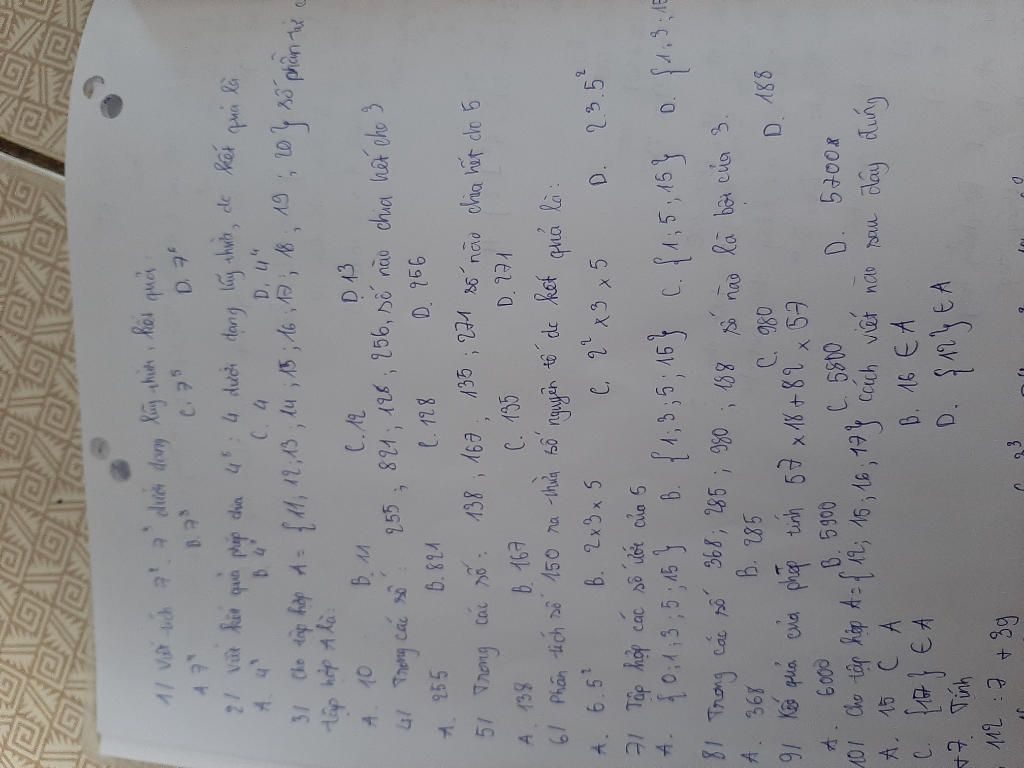 1/ Viết tích 7⁴. 7⁴ dưới dạng lũy thừa, kết quả:
B. 7⁸ C. 7⁵ D. 7⁶
2/ Viết kết quả phép chia : 4 dưới dạng lũy thừa, dc kết quả là
A. B. C. 4 D. 4⁴
3/ Cho tập hợp A = {11; 12; 13; 14; 15; 16; 17; 18; 19; 20} số phần tử
tập hợp A là:
A. 10 B. 11 C. 12 D. 13
4/ Trong các số: 255; 821; 128; 256, số nào chia hết cho 3
A. 255 B. 821 C. 128 D. 256
5/ Trong các số: 138; 167; 135; 271 số nào chia hết cho 5
A. 138 B. 167 C. 135 D. 271
6/ Phân tích số 150 ra thừa số nguyên tố dc kết quả là:
A. 6.5² B. 2 x 3 x 5 C. 2² x 3 x 5 D. 2.3.5²
7/ Tập hợp các số ước của 5
A. {0; 1; 3; 5; 15} B. {1; 3; 5; 15} C. {1; 5; 15} D. {1; 3; 15
8/ Trong các số 368; 285; 980; 188 số nào là bội của 3.
A. 368 B. 285 C. 980 D. 188
9/ Kết quả của phép tính 57 x 18 + 82 x 57
A. 6000 B. 5900 C. 5800 D. 5700
10/ Cho tập hợp A = {12; 15; 16; 17} cách viết nào sau đây đúng
A. 15 C A B. 16 ∈ A
C. {17} ∈ A D. {12} ∈ A
+7. Tính
112 : 7 + 39